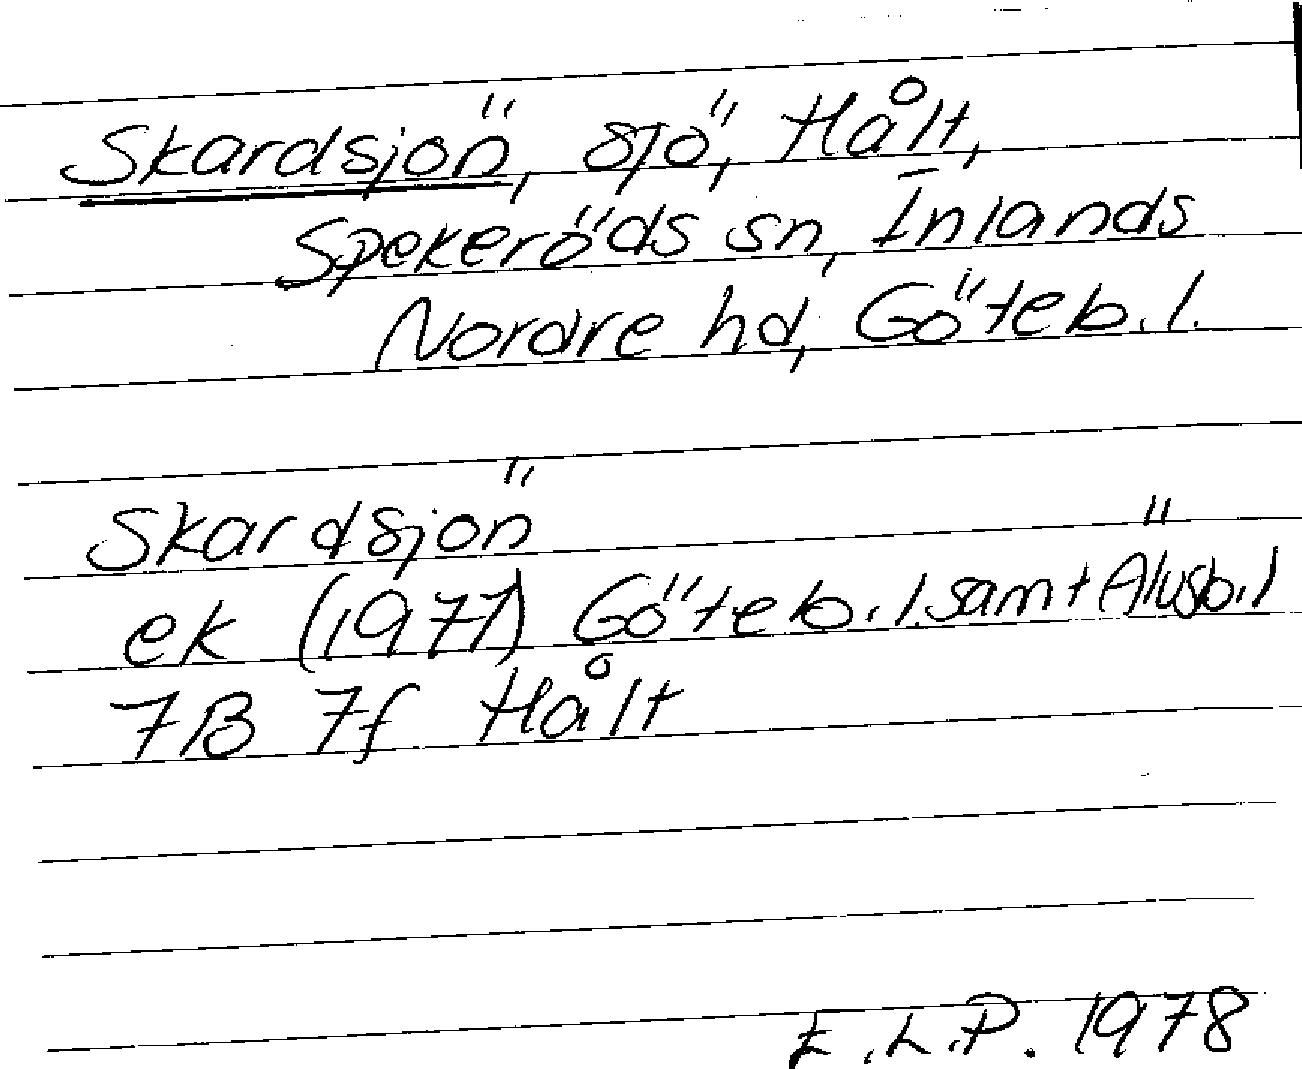 Skardsjön, sjö, Hålt,
Spekeröds sn, Inlands
Nordre hd, Göteb. l.
Skardsjön
ek (1977) Göteb. l. samt Älvsb. l
7B 7f Hålt
E.L.P. 1978